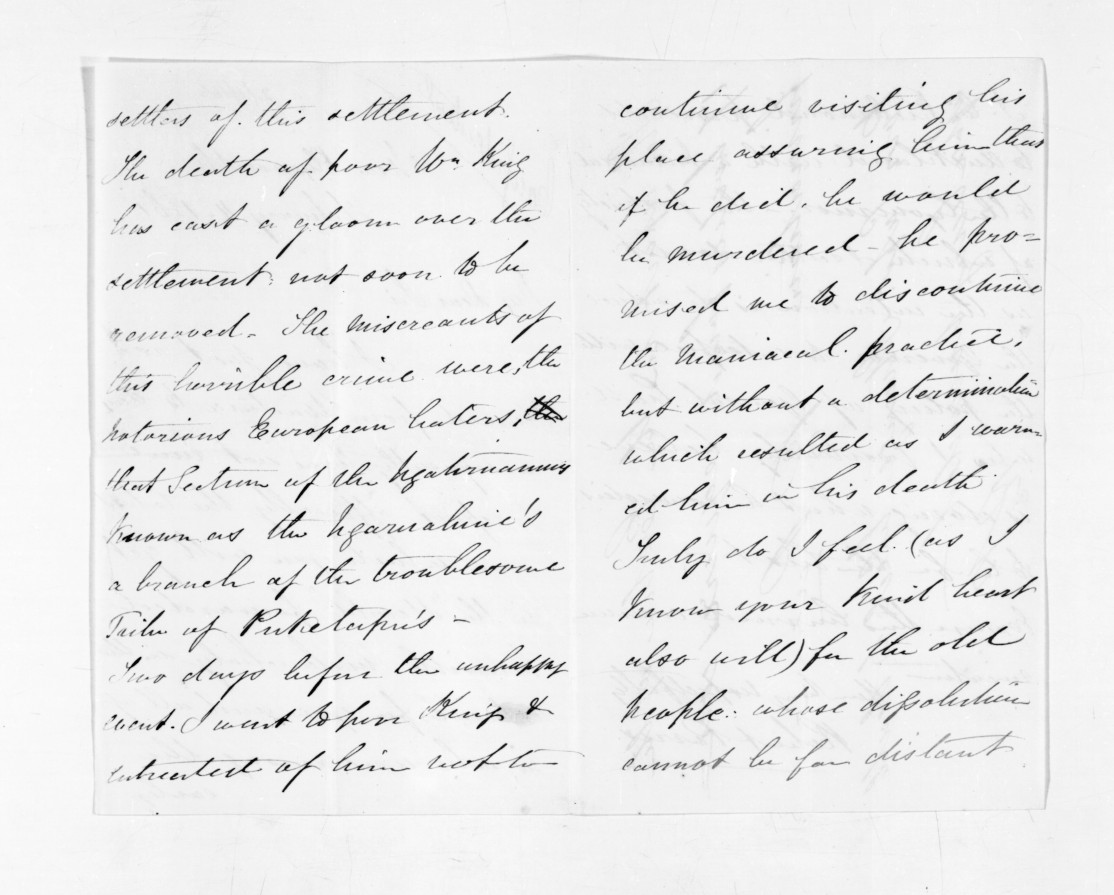 settlers of this settlement.
The death of poor Wm King
has cast a gloom over the
settlement, not soon to be
removed - The Miscreants of
this horrible crime were, the
notorious European haters, the
that Section of the Ngatimaniu
Known as the Ngamahine's
a branch of the troublesome
Tribe of Puketapu's -
Two days before the unhappy
event. I went to poor King &
entreated of him not to
continue visiting his
place assuring him that
if he did, he would
be murdered - he pro=
mised me to discontinue
the Maniacal practice,
but without a determination
which resulted as I warn=
ed him in his death
Truly do I feel (as I
Know your Kind heart
also will) for the old
people whose dissolution
cannot be far distant